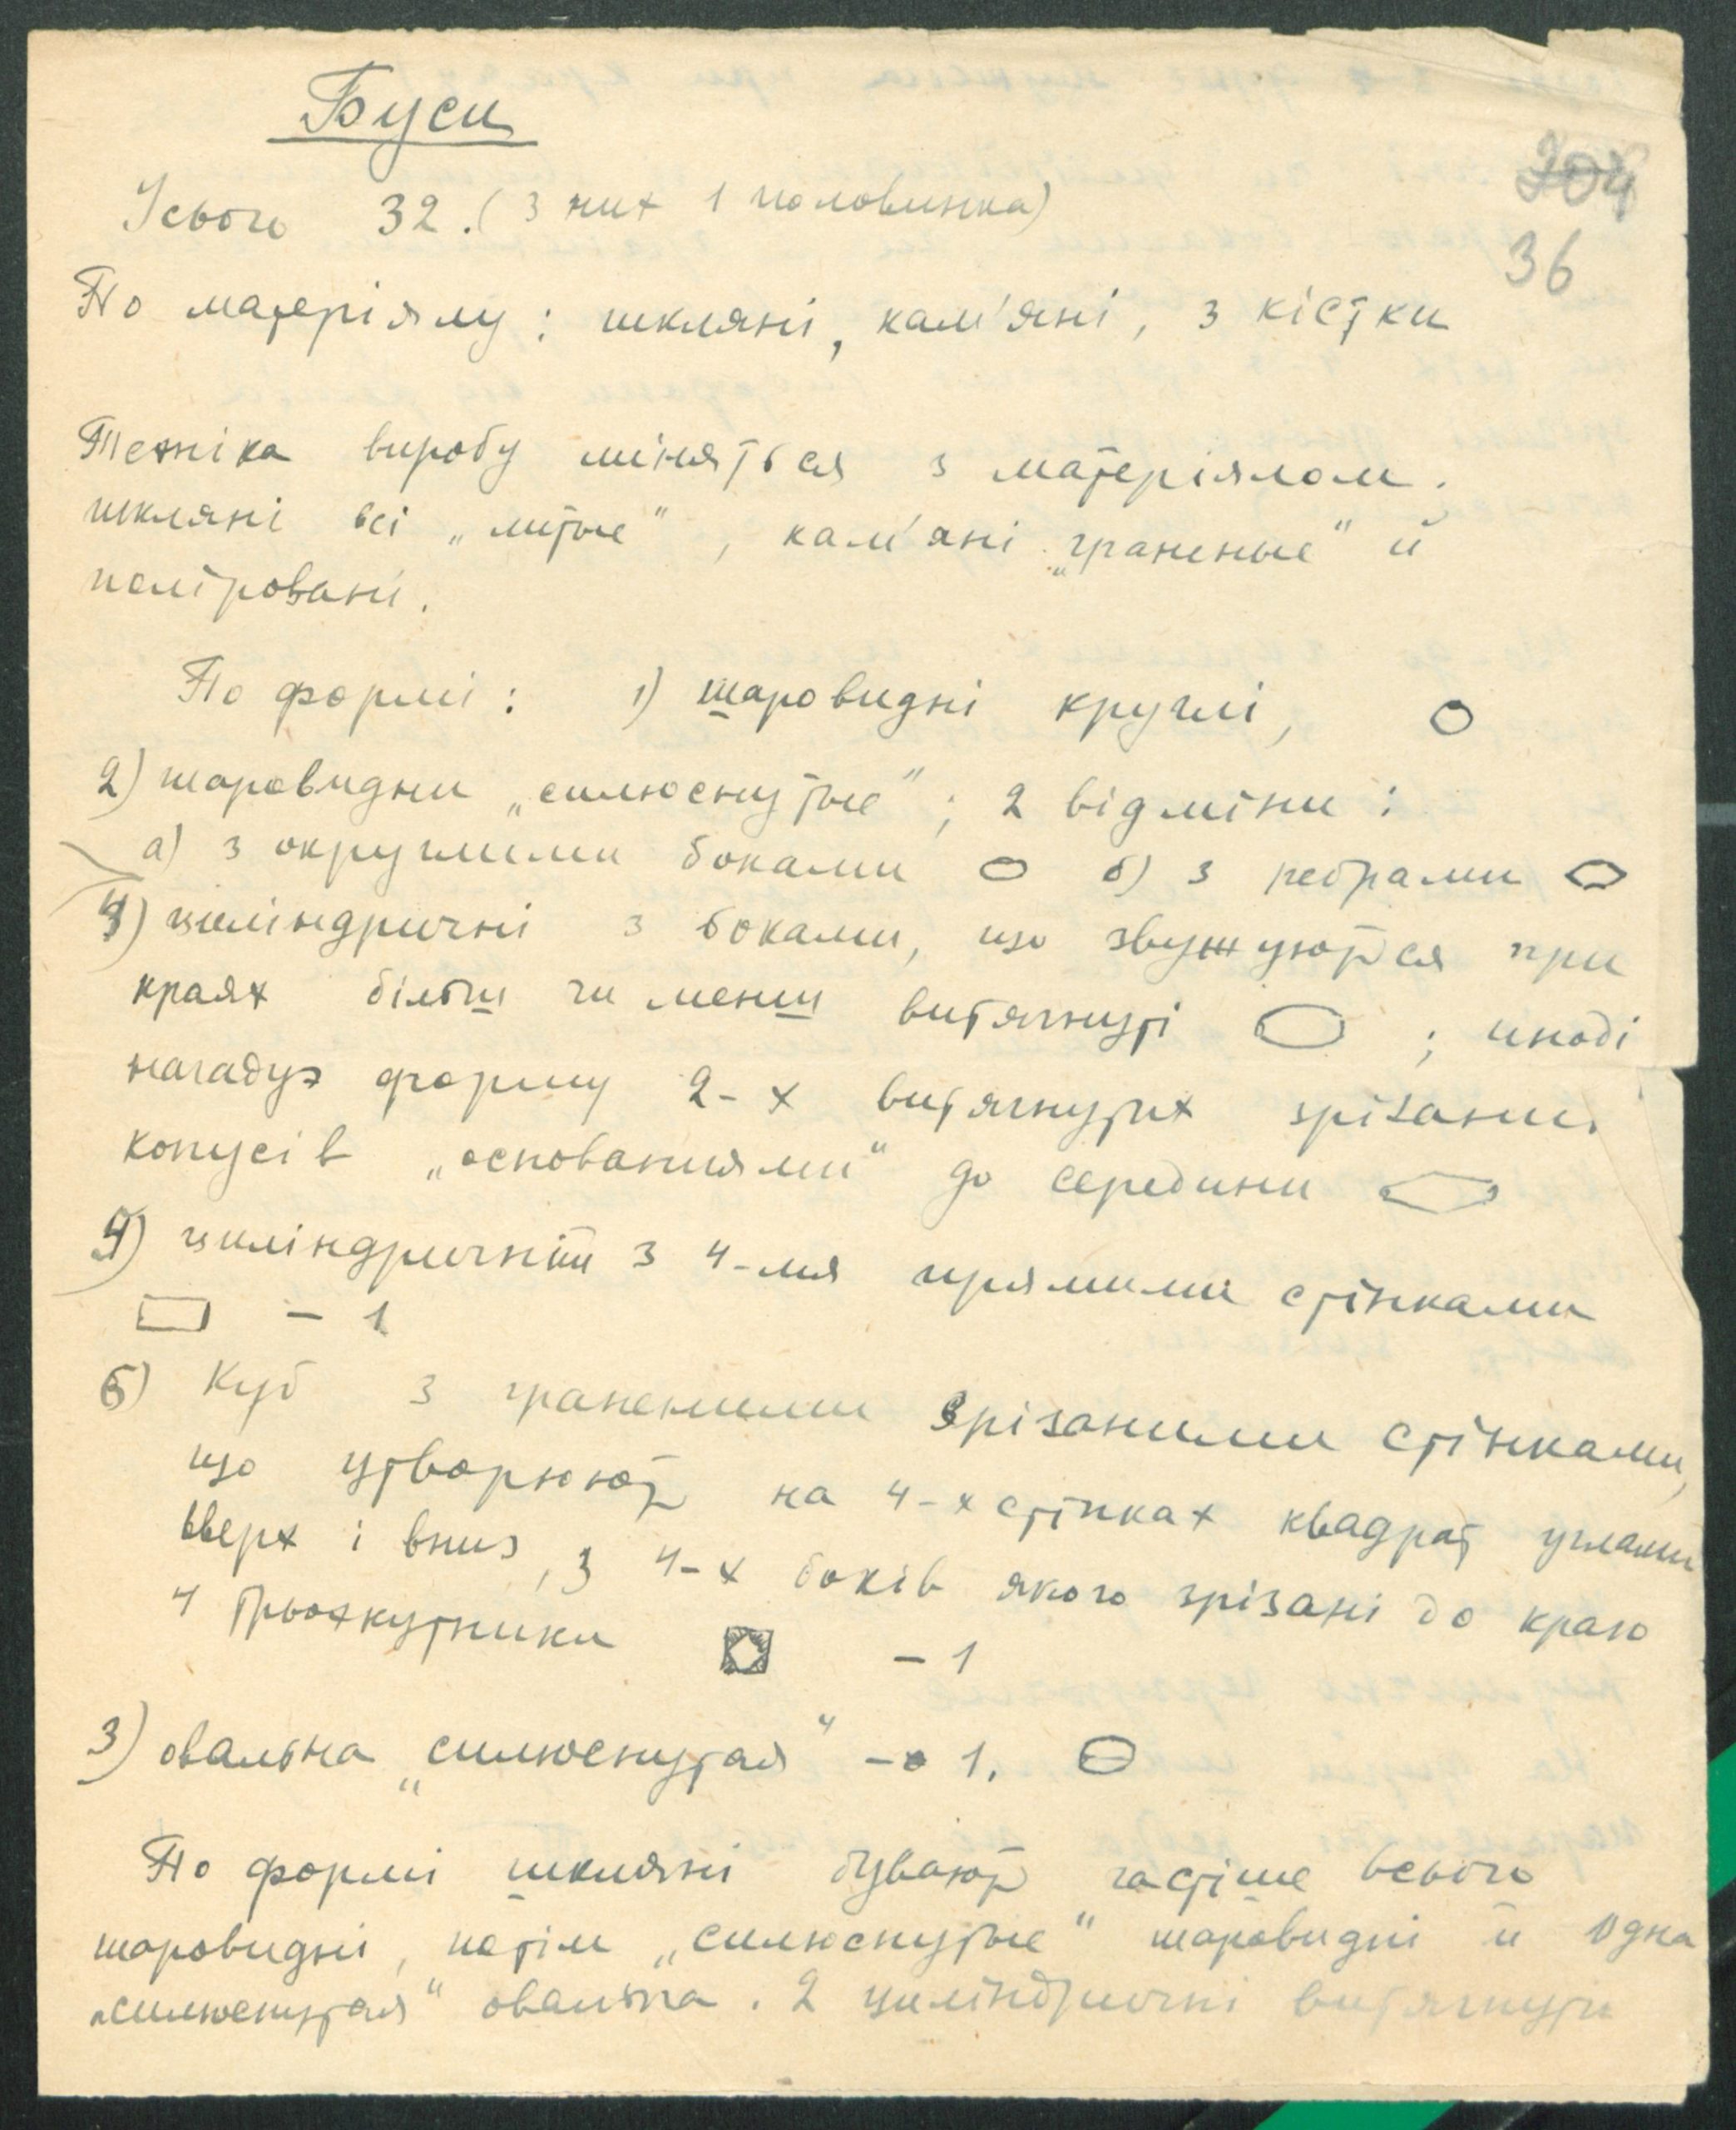 Буси
204
Усього 32. (з них 1 половинка)
36
По матеріялу: шкляні, кам'яні, з кістки
Техніка виробу міняться з матеріялом.
шкляні всі „литые", кам'яні „граненые" й
поліровані.
По формі: 1) шаровидні круглі,
2) шаровидни „сплюснутые"; 2 відміни:
а) з округлими боками б) з ребрами
4) циліндричні з боками, що звужуються при
краях більш чи менш витягнуті ; иноді
нагадує форму 2-х витягнутих зрізани.
конусів „основаниями" до середини
5) циліндричний з 4-мя прямими стінками
– 1
6) Куб з гранеными зрізаними стінками,
що утворюють на 4-х стінках квадрат углами
вверх і вниз, з 4-х боків якого зрізані до краю
4 трьохкутники – 1
3) овальна „сплюснутая" – 1.
По формі шкляні бувають частіше всього
шаровидні, потім „сплюснутые" шаровидні й одна
„сплюснутая" овальна. 2 циліндричні витягнути